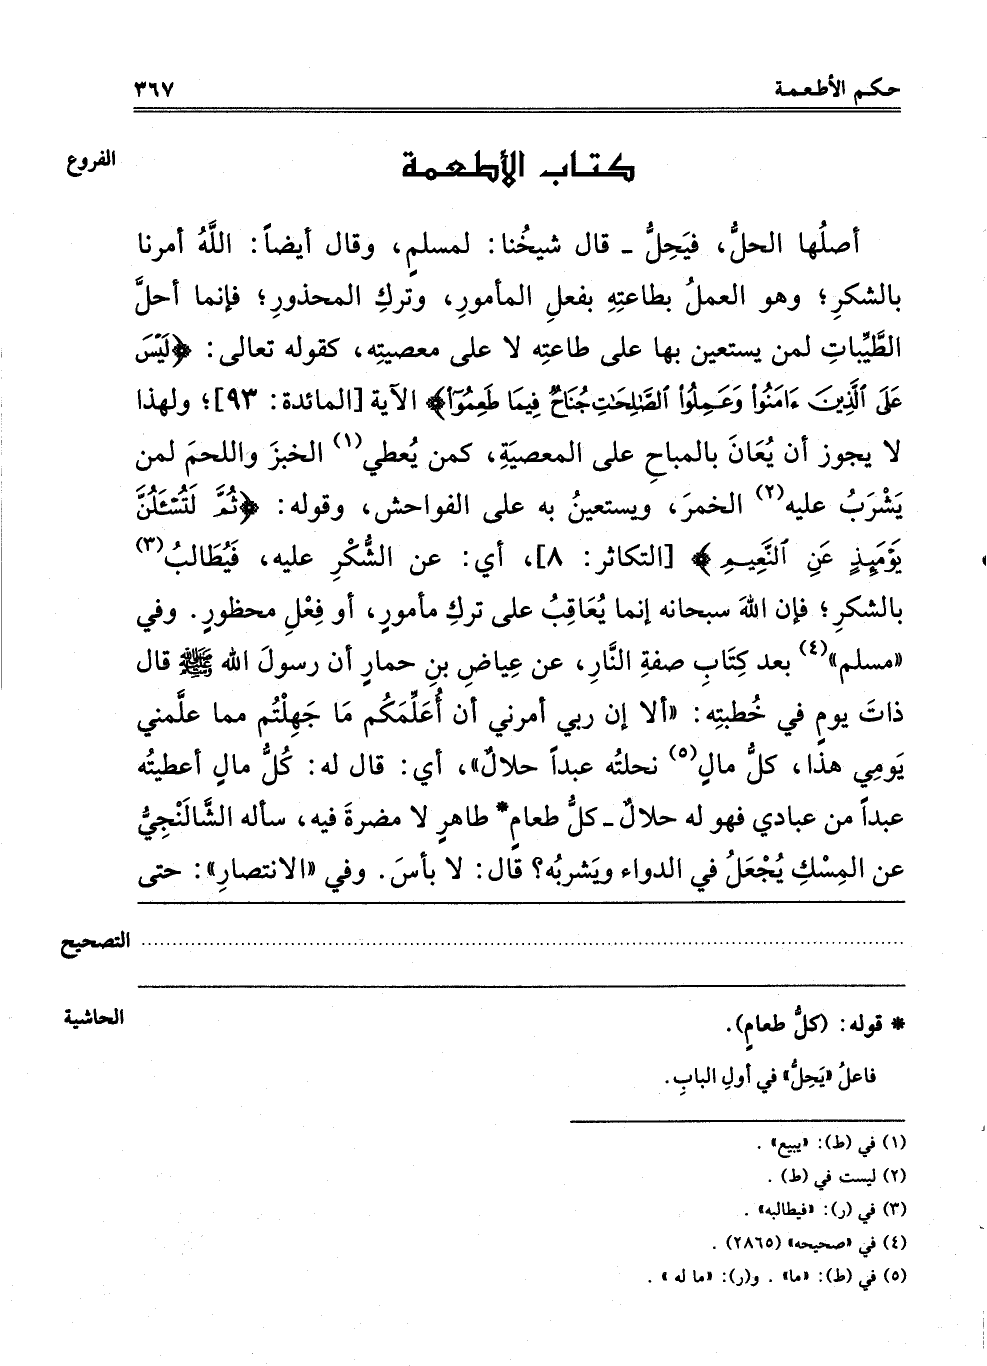 حكم الأطعمة ٣٦٧
الفروع
كتاب الأطعمة
أصلُها الحلُّ، فيَحِلُّ ـ قال شيخُنا: لمسلمٍ، وقال أيضاً: اللَّهُ أمرنا
بالشكرِ؛ وهو العملُ بطاعتِهِ بفعلِ المأمورِ، وتركِ المحذورِ؛ فإنما أحلَّ
الطَّيِّباتِ لمن يستعين بها على طاعتِه لا على معصيتِه، كقوله تعالى: ﴿لَيْسَ
عَلَى ٱلَّذِينَ ءَامَنُوا۟ وَعَمِلُوا۟ ٱلصَّـٰلِحَـٰتِ جُنَاحٌ فِيمَا طَعِمُوٓا۟﴾ الآية [المائدة: ٩٣]؛ ولهذا
لا يجوز أن يُعَانَ بالمباحِ على المعصيَةِ، كمن يُعطي(١) الخبزَ واللحمَ لمن
يَشْرَبُ عليه(٢) الخمرَ، ويستعينُ به على الفواحش، وقوله: ﴿ثُمَّ لَتُسْـَٔلُنَّ
يَوْمَئِذٍ عَنِ ٱلنَّعِيمِ﴾ [التكاثر: ٨]، أي: عن الشُّكْرِ عليه، فَيُطَالبُ(٣)
بالشكرِ؛ فإن اللهَ سبحانه إنما يُعَاقِبُ على تركِ مأمورٍ، أو فِعْلِ محظورٍ. وفي
«مسلم»(٤) بعد كِتَابِ صفةِ النَّارِ، عن عِياضِ بنِ حمارٍ أن رسولَ الله ﷺ قال
ذاتَ يومٍ في خُطبتِه: «ألا إن ربي أمرني أن أُعَلِّمَكُم مَا جَهِلْتُم مما علَّمني
يَومِي هذا، كلُّ مالٍ(٥) نحلتُه عبداً حلالٌ»، أي: قال له: كُلُّ مالٍ أعطيتُه
عبداً من عبادي فهو له حلالٌ ـ كلُّ طعامٍ* طاهرٍ لا مضرةَ فيه، سأله الشَّالَنْجِيُّ
عن المِسْكِ يُجْعَلُ في الدواء ويَشربُه؟ قال: لا بأسَ. وفي «الانتصارِ»: حتى
التصحيح
الحاشية
* قوله: (كلُّ طعامٍ).
فاعلُ «يَحِلُّ» في أولِ البابِ.
(١) في (ط): «يبيع» .
(٢) ليست في (ط) .
(٣) في (ر): «فيطالبه» .
(٤) في «صحيحه» (٢٨٦٥) .
(٥) في (ط): «ما» . و(ر): «ما له » .